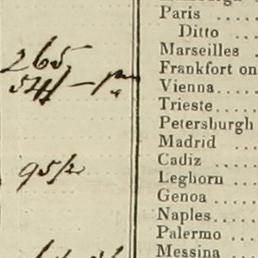 Paris ....
Ditto ....
265
Marseilles ...
54½ – pm
Frankfort on
Vienna ....
Trieste ....
Petersburgh
Madrid ...
95½
Cadiz ....
Leghorn ...
Genoa ....
Naples ....
Palermo ...
Messina ...